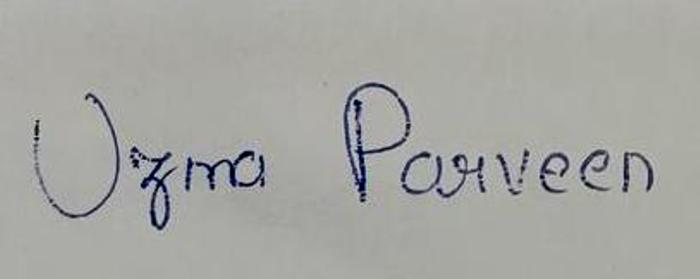 Uzma Parveen